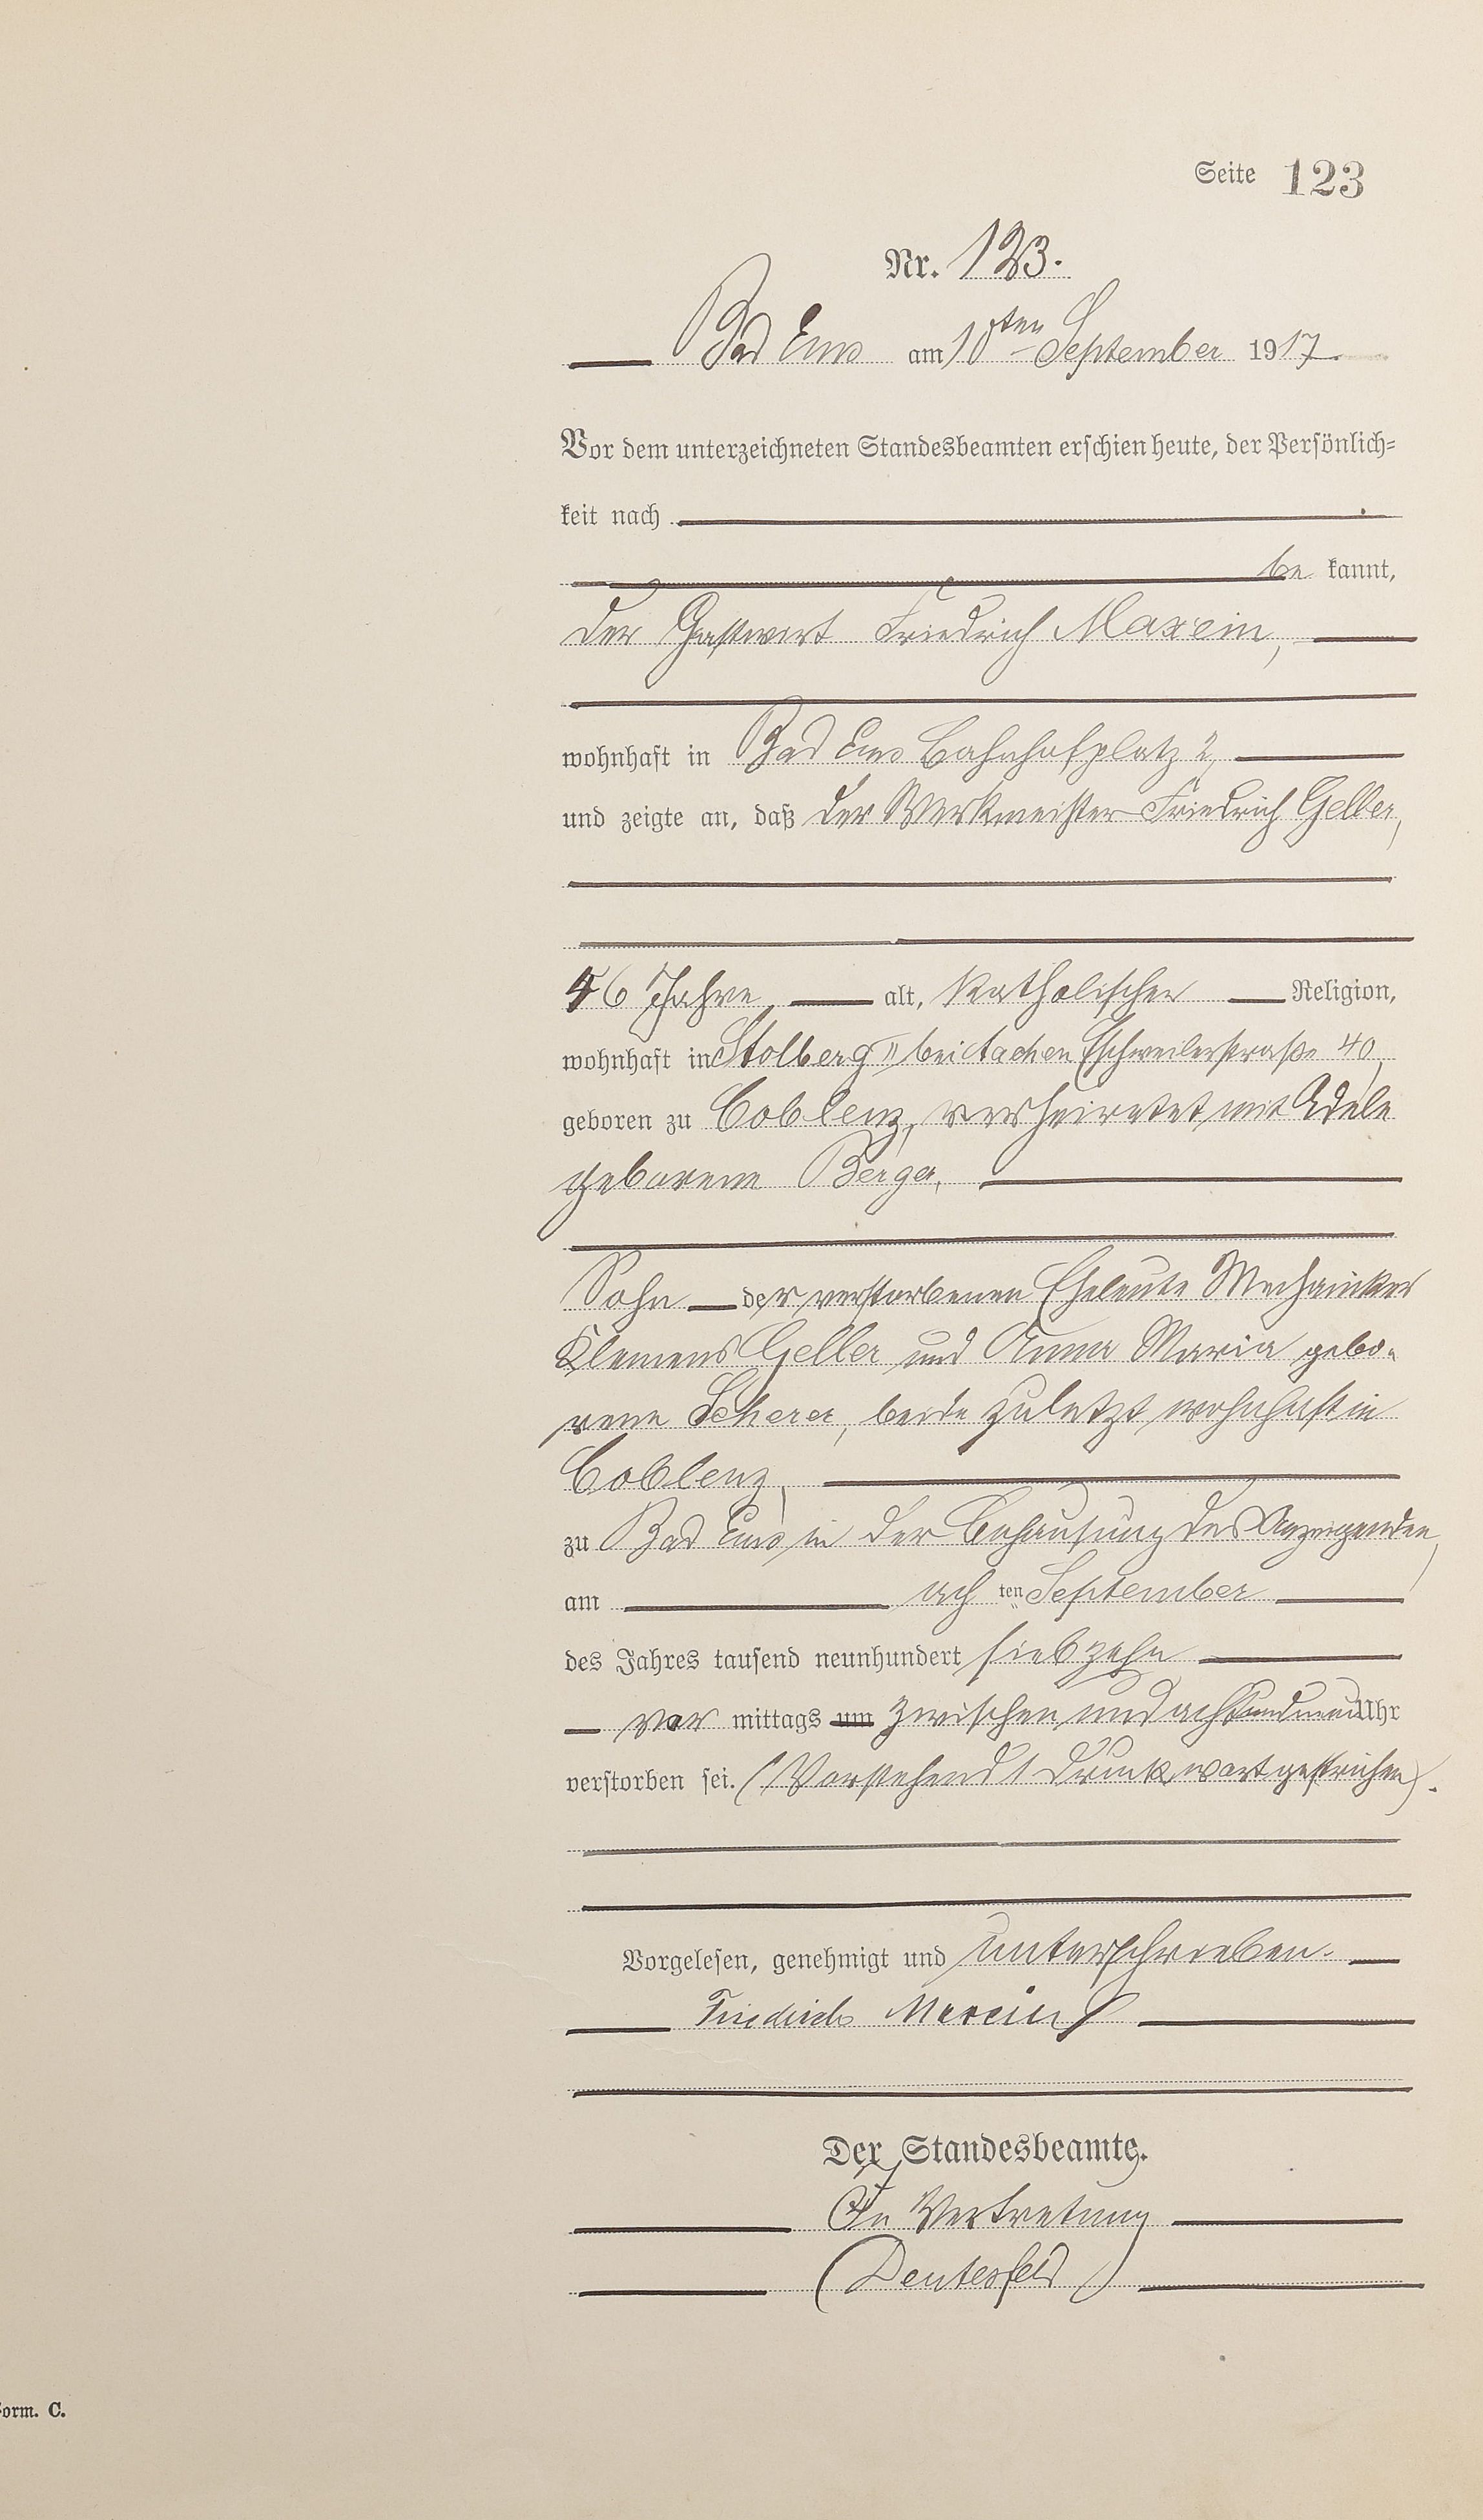 Seite 123
Nr. 123.
Bad Ems am 10ten September 1917.
Vor dem unterzeichneten Standesbeamten erschien heute, der Persönlich-
keit nach
be kannt,
der Gastwirt Friedrich Maxein,
wohnhaft in Bad Ems Bahnhofplatz 2,
und zeigte an, daß der Werkmeister Friedrich Geller,
46 Jahre, alt, katholischer Religion,
wohnhaft in Stolberg II bei Aachen Eschweilerstraße 40,
geboren zu Coblenz, verheiratet mit Adele
geborene Berger,
Sohn der verstorbenen Eheleute Mechaniker
Klemens Geller und Anna Maria gebo-
rene Scherer, beide zuletzt wohnhaft in
Coblenz,
zu Bad Ems in der Behausung des Anzeigenden,
am ach ten September
des Jahres tausend neunhundert siebzehn
vor mittags um zwischen und acht und neun Uhr
verstorben sei. (Vorstehend 1 Druckwort gestrichen).
Vorgelesen, genehmigt und unterschrieben.
Friedrich Maxein
Der Standesbeamte.
In Vertretung
(Deutesfeld)
Form. C.